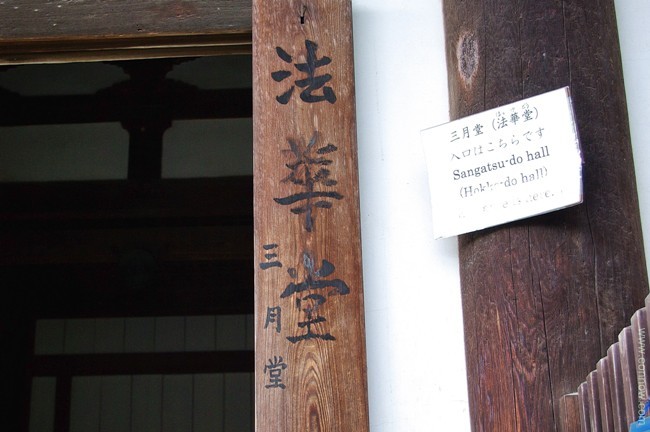 法華堂
三月堂
三月堂（法華堂）
入口はこちらです
Sangatsu-do hall
(Hokke-do hall)